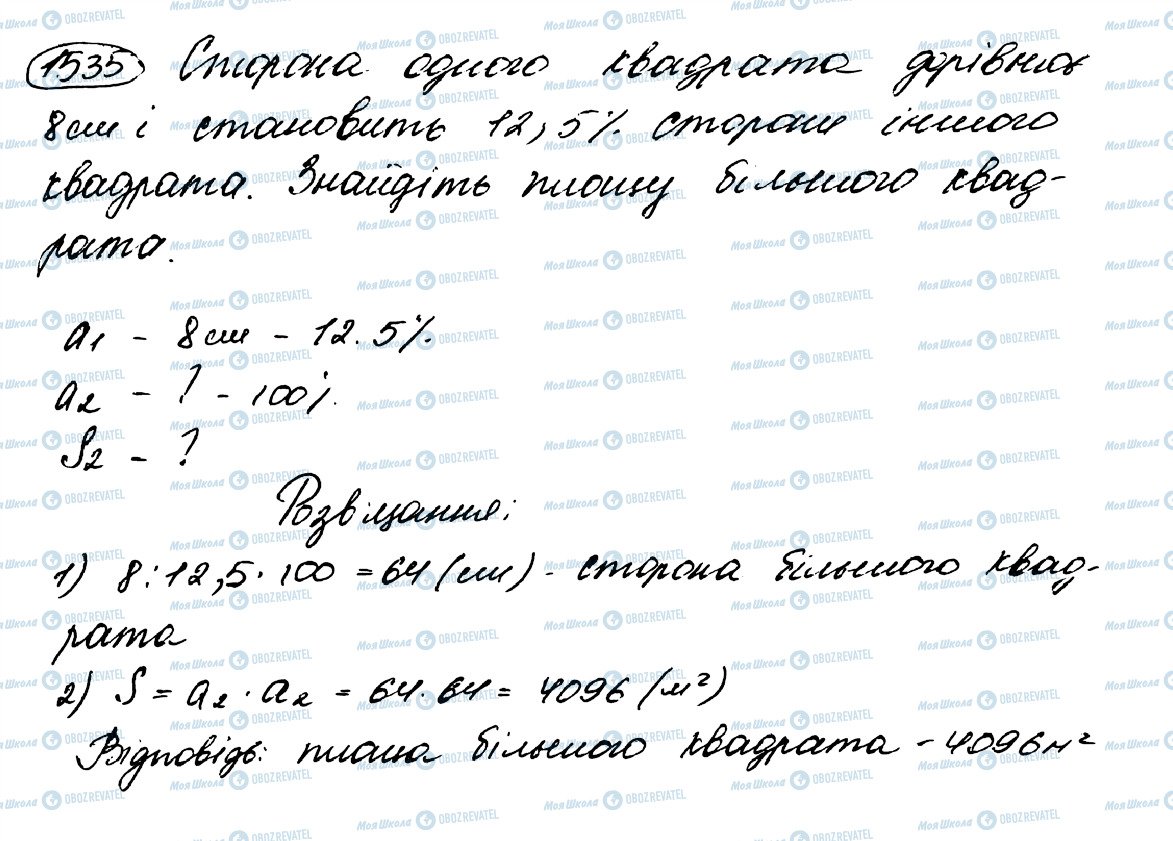 1535 Сторона одного квадрата дорівнює
8см і становить 12,5% сторони іншого
квадрата. Знайдіть площу більшого квад-
рата.
a1 - 8см - 12.5%
a2 - ? - 100%.
S2 - ?
Розв'язання:
1) 8:12,5·100 = 64 (см) - сторона більшого квад-
рата
2) S = a2 · a2 = 64·64 = 4096 (м²)
Відповідь: площа більшого квадрата - 4096м²
Моя Школа OBOZREVATEL